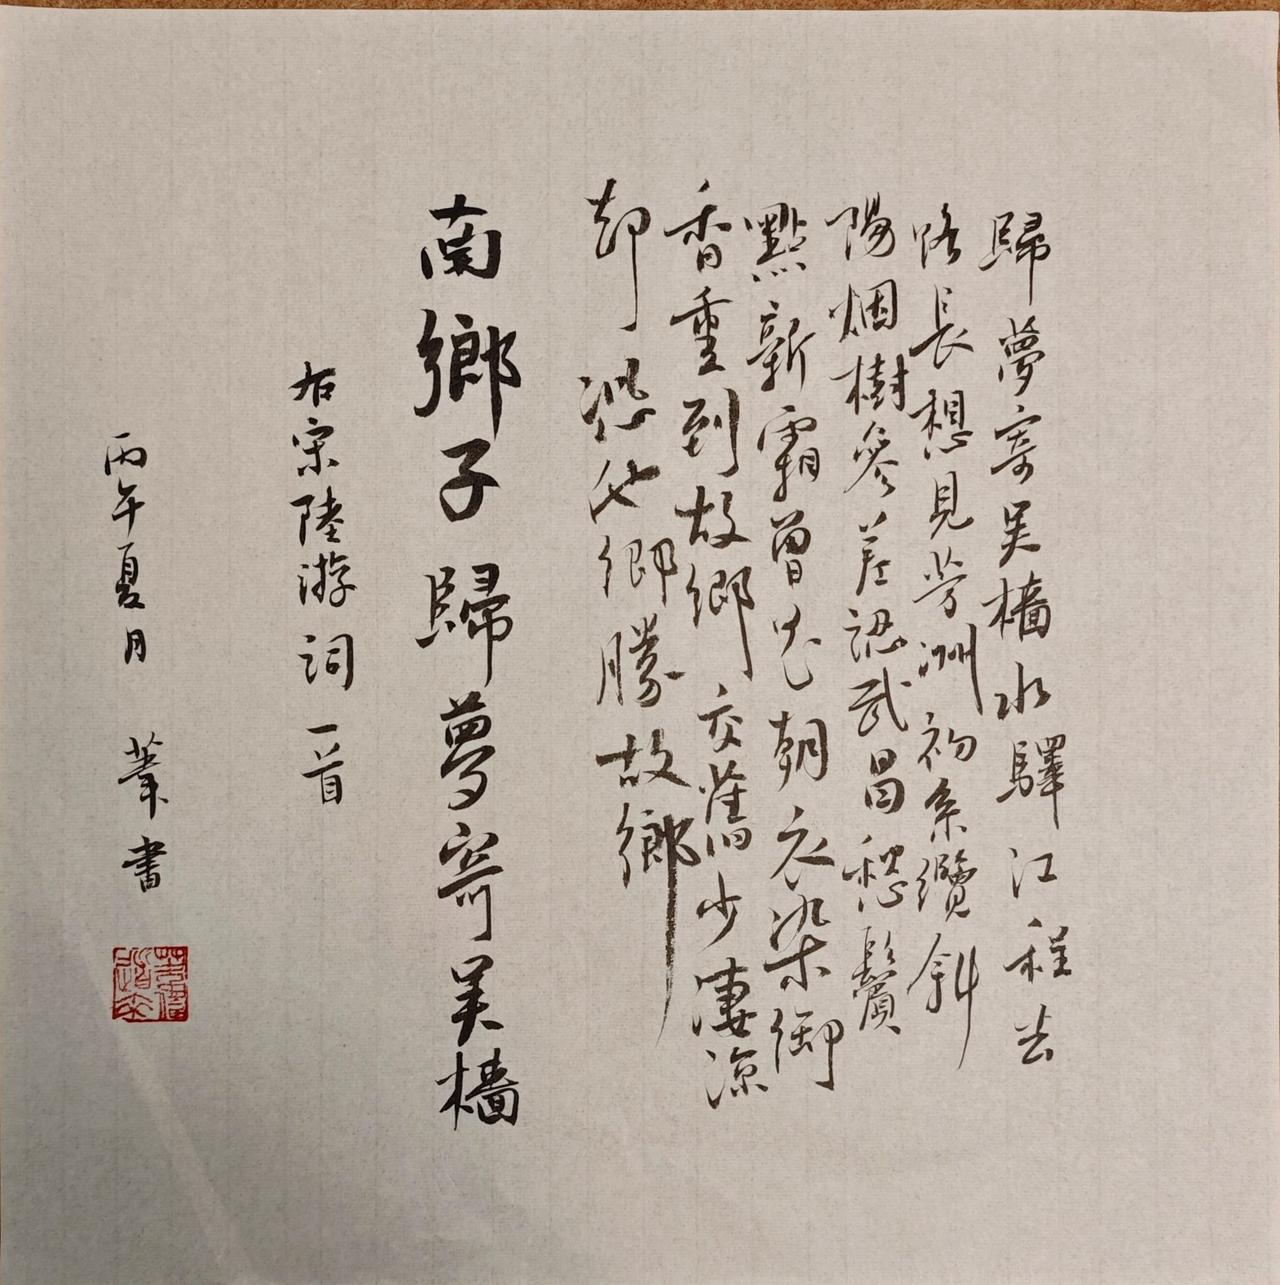 歸夢寄吳檣水驛江程去
路長想見芳洲初系纜斜
陽烟樹參差認武昌愁鬢
點新霜曾是朝衣染御
香重到故鄉交舊少淒涼
却恐他鄉勝故鄉
南鄉子 歸夢寄吳檣
右宋陸游詞一首
丙午夏月 書